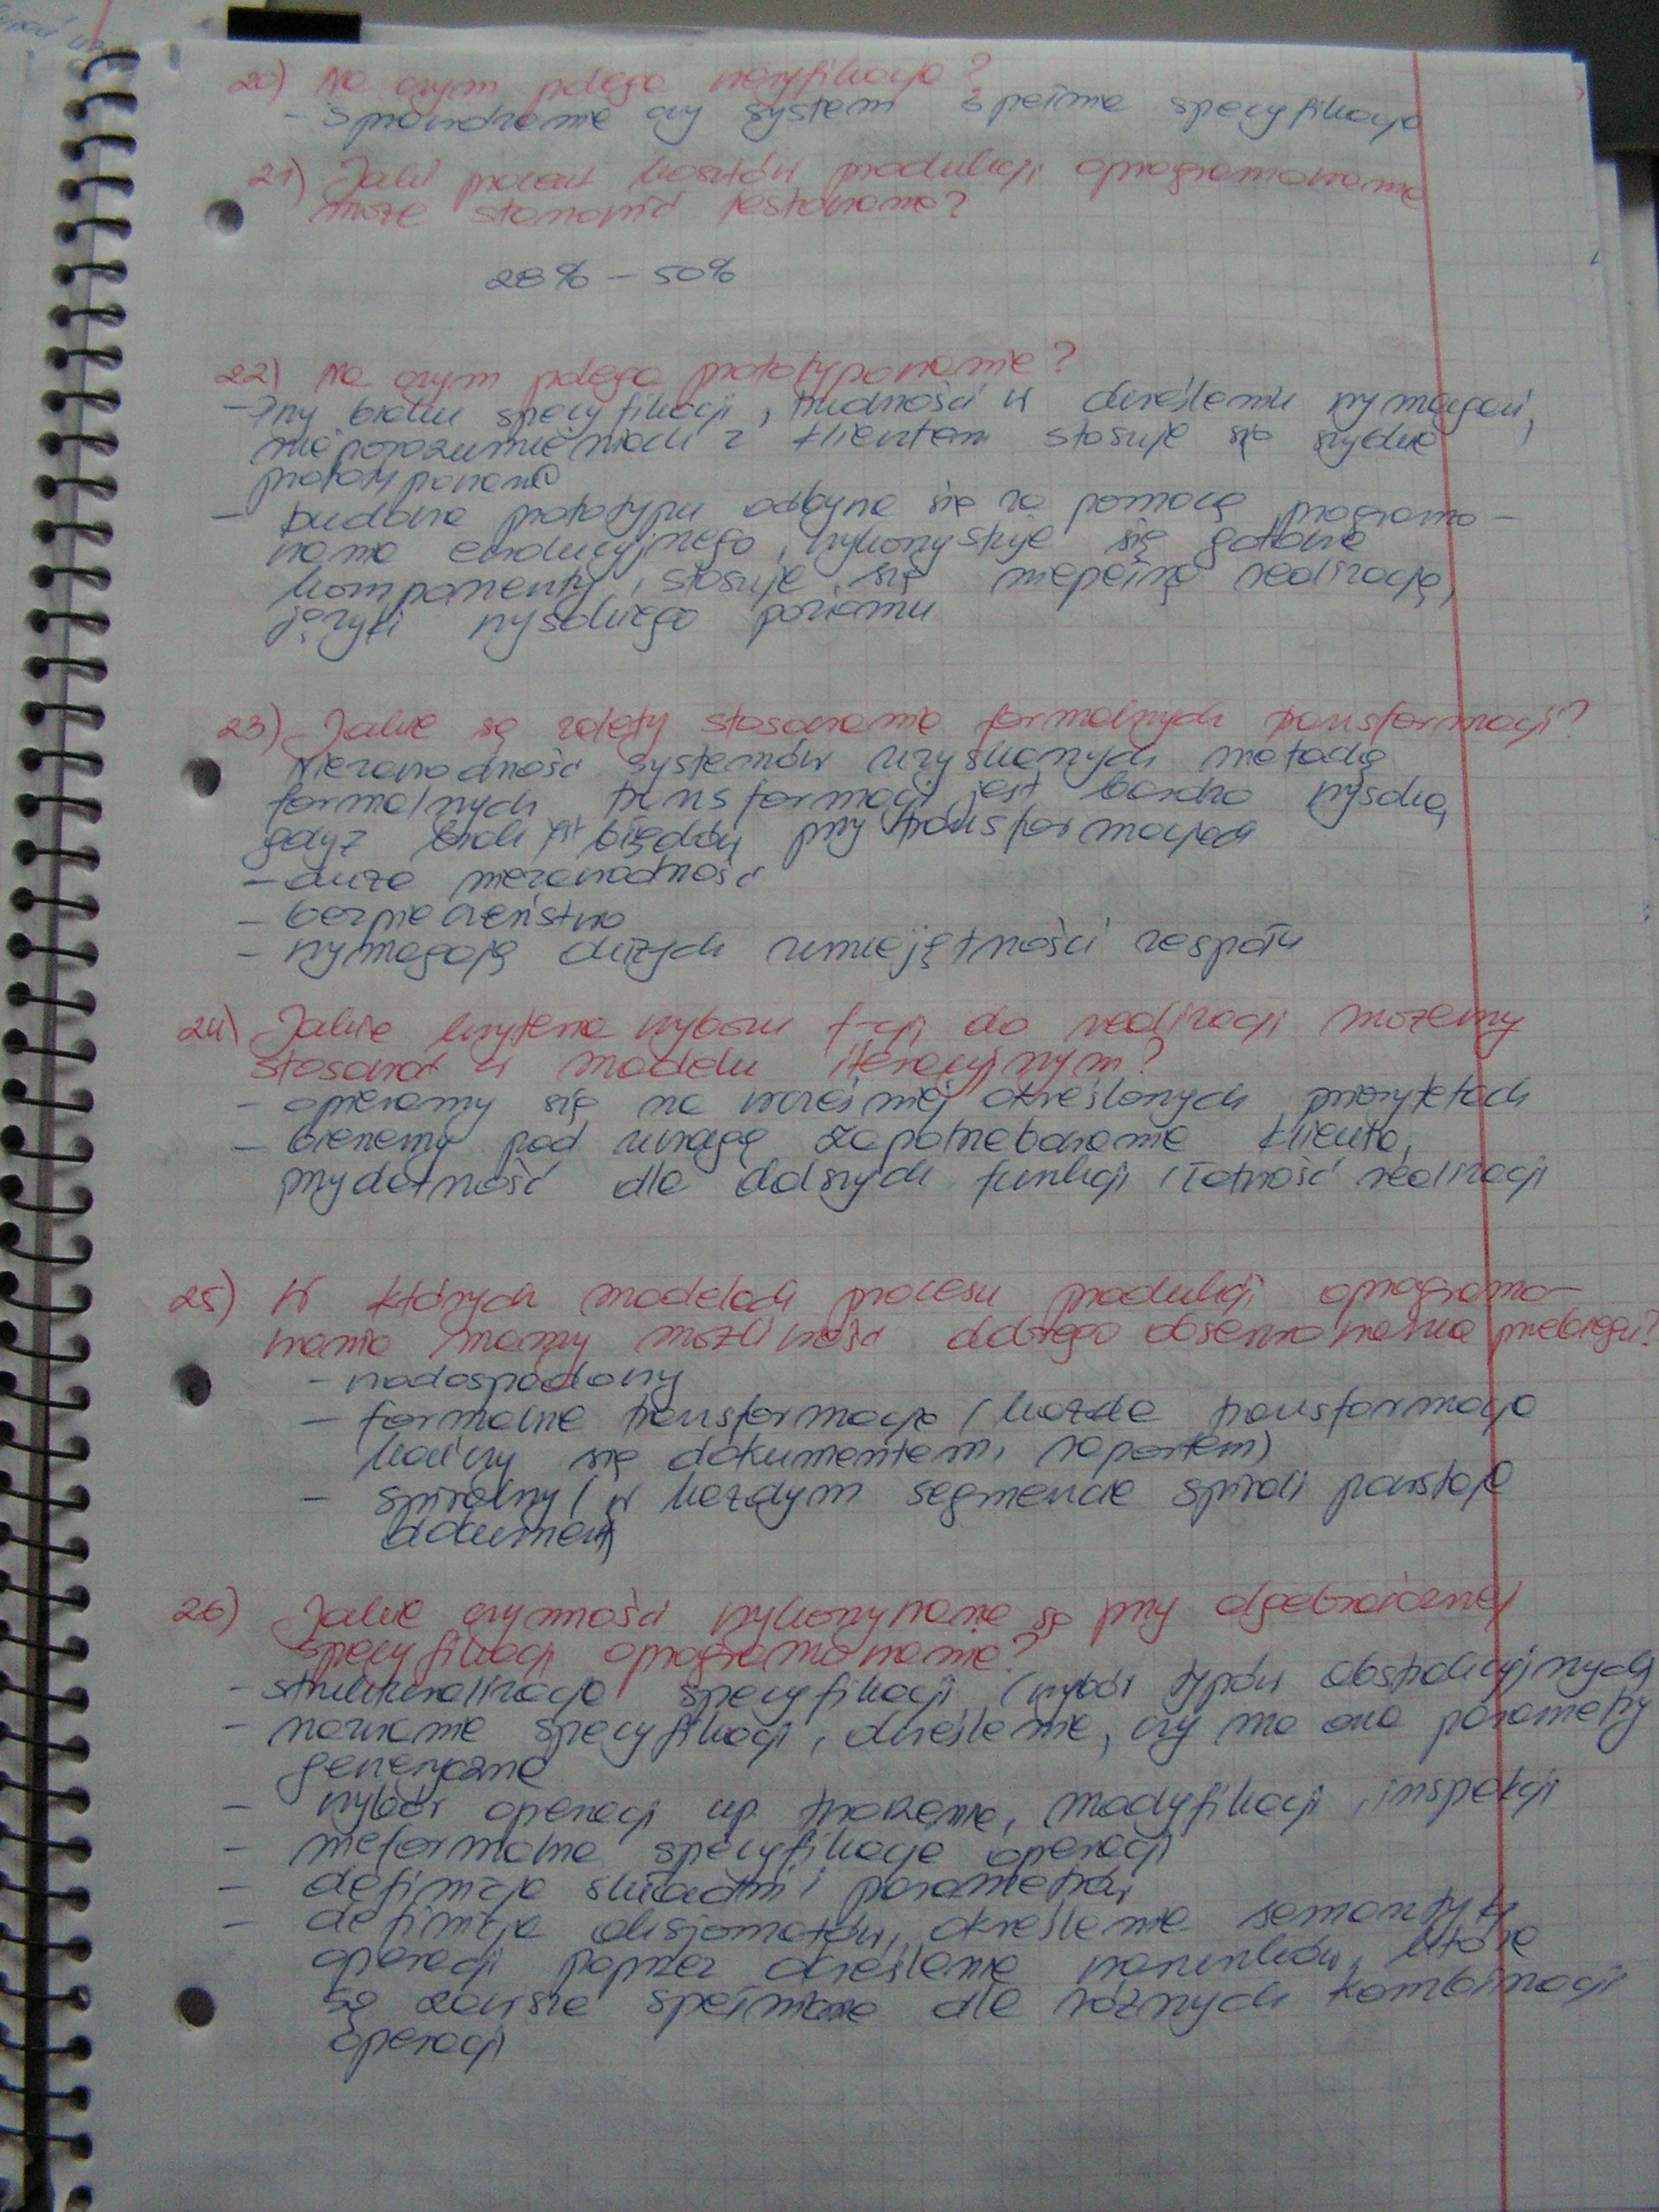 20) Na czym polega weryfikacja?
- Sprawdzenie czy system spełnia specyfikację
21) Jaki procent kosztów produkcji oprogramowania
może stanowić testowanie?
28% - 50%
22) Na czym polega prototypowanie?
- Przy braku specyfikacji, trudności w określeniu wymagań,
nieporozumieniach z klientem stosuje się szybkie
prototypowanie
- budowa prototypu odbywa się za pomocą programo-
wania ewolucyjnego, wykorzystuje się gotowe
komponenty, stosuje się niepełną realizację,
języki wysokiego poziomu
23) Jakie są zalety stosowania formalnych transformacji?
Niezawodność systemów uzyskanych metodą
formalnych transformacji jest bardzo wysoka,
gdyż brak jest błędów przy transformacjach
- duża niezawodność
- bezpieczeństwo
- wymagają dużych umiejętności zespołu
24) Jakie kryteria wyboru f-cji do realizacji możemy
stosować w modelu iteracyjnym?
- opieramy się na wcześniej określonych priorytetach
- bierzemy pod uwagę zapotrzebowanie klienta,
przydatność dla dalszych funkcji, łatwość realizacji
25) W których modelach procesu produkcji oprogramo-
wania mamy możliwość dobrego obserwowania przebiegu?
- wodospadowy
- formalne transformacje (każda transformacja
kończy się dokumentem, raportem)
- spiralny (w każdym segmencie spirali powstaje
dokument)
26) Jakie czynności wykonywane są przy algebraicznej
specyfikacji oprogramowania?
- strukturalizacja specyfikacji (wybór typów abstrakcyjnych)
- nazwanie specyfikacji, określenie, czy ma ona parametry
generyczne
- wybór operacji np. tworzenie, modyfikacji, inspekcji
- nieformalna specyfikacja operacji
- definicja składni i parametrów
- definicja aksjomatów, określenie semantyki
operacji poprzez określenie warunków, które
są zawsze spełnione dla różnych kombinacji
operacji